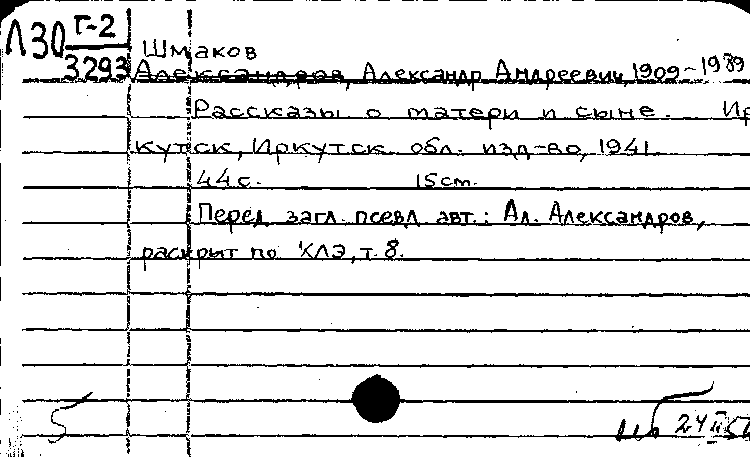 Л30 Г-2
3293
Шмаков
Александров, Александр Андреевич, 1909-1989
Рассказы о матери и сыне. Ир
кутск, Иркутск. обл. изд-во, 1941.
44с. 15cm.
Перед загл. псевд. авт.: Ал. Александров,
раскрыт по КЛЭ, т. 8.
5
24 II